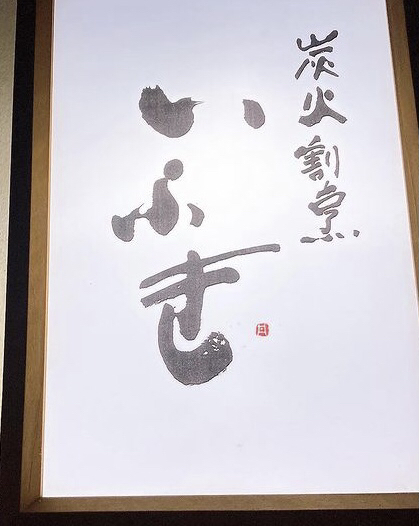 炭火割烹
いふき